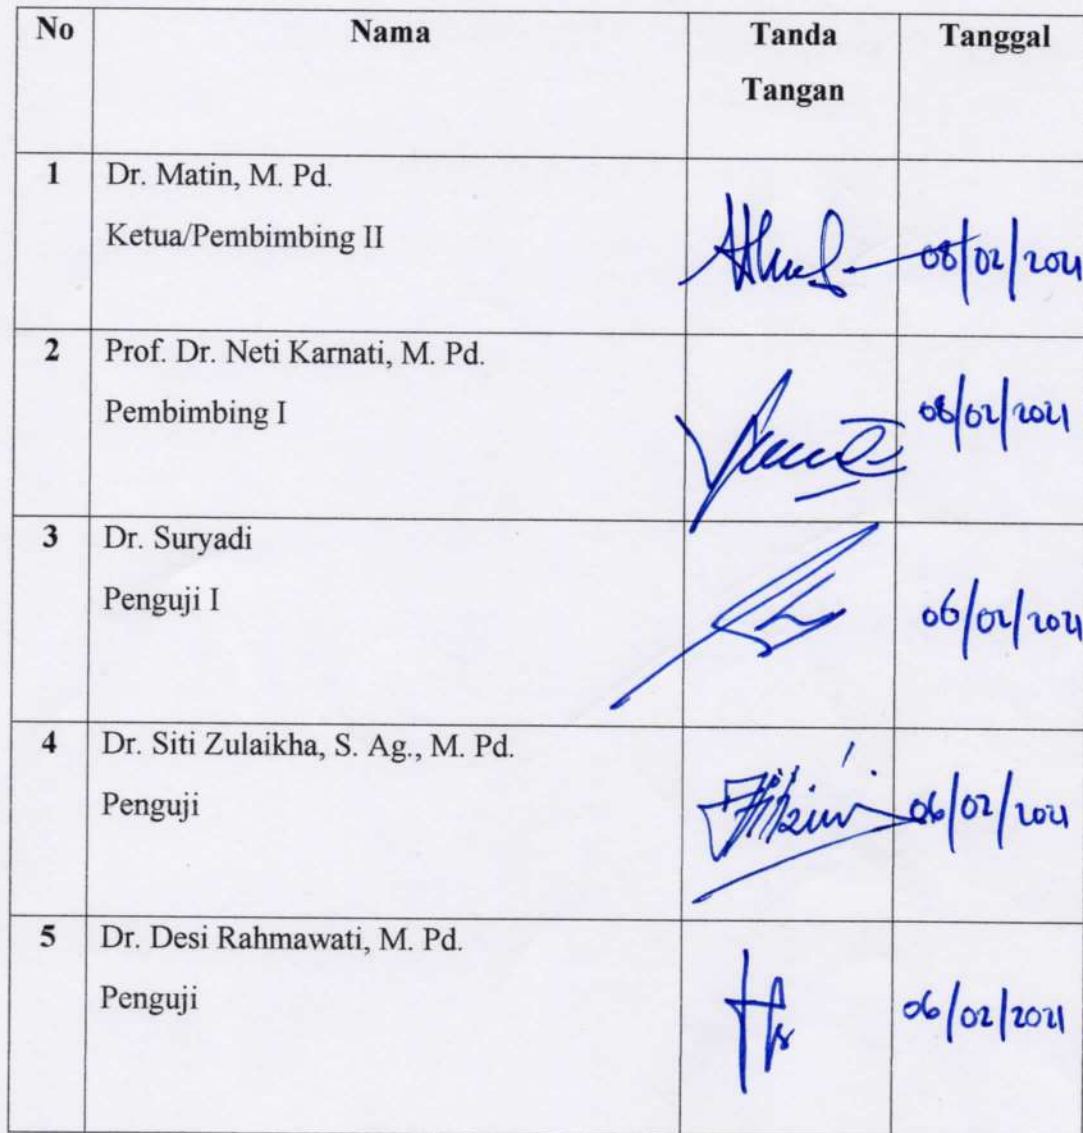 No Nama Tanda Tangan Tanggal
1 Dr. Matin, M. Pd.
Ketua/Pembimbing II
08/02/2021
2 Prof. Dr. Neti Karnati, M. Pd.
Pembimbing I
08/02/2021
3 Dr. Suryadi
Penguji I
06/02/2021
4 Dr. Siti Zulaikha, S. Ag., M. Pd.
Penguji
06/02/2021
5 Dr. Desi Rahmawati, M. Pd.
Penguji
06/02/2021